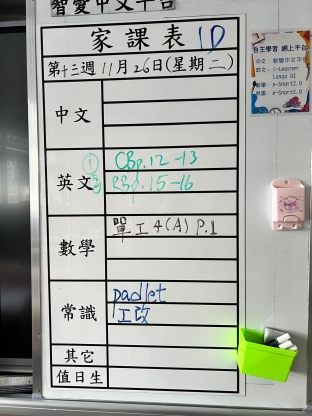 智愛中文平台
家課表 1D
第十三週 11月26日(星期二)
中文
英文
① CBp.12-13
② RBp.15-16
數學
單工4(A) P.1
常識
padlet
工改
其它
值日生
自主學習 網上平台
中文: 智愛中文平台
英文: i-Learner
Longo AI
數學: e-Smart2.0
常識: e-Smart2.0